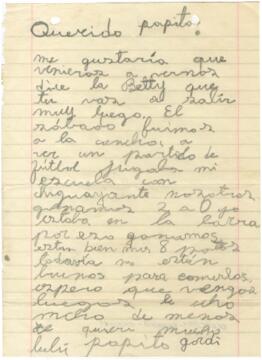 Querido papito:
me gustaría que
vinieras a vernos
dice la Betty que
tu vas a salir
muy luego. El
sábado fuimos
a la cancha, a
ver un partido de
fútbol jugaba mi
escuela con
chiguayante nosotros
ganamos 2 a 0 yo
estaba en la barra
por eso ganamos
están bien mis 8 patos
todavía no están
buenos para comerlos,
espero que vengas
luego, te echo
mcho de menos
te quiere mucho
papito